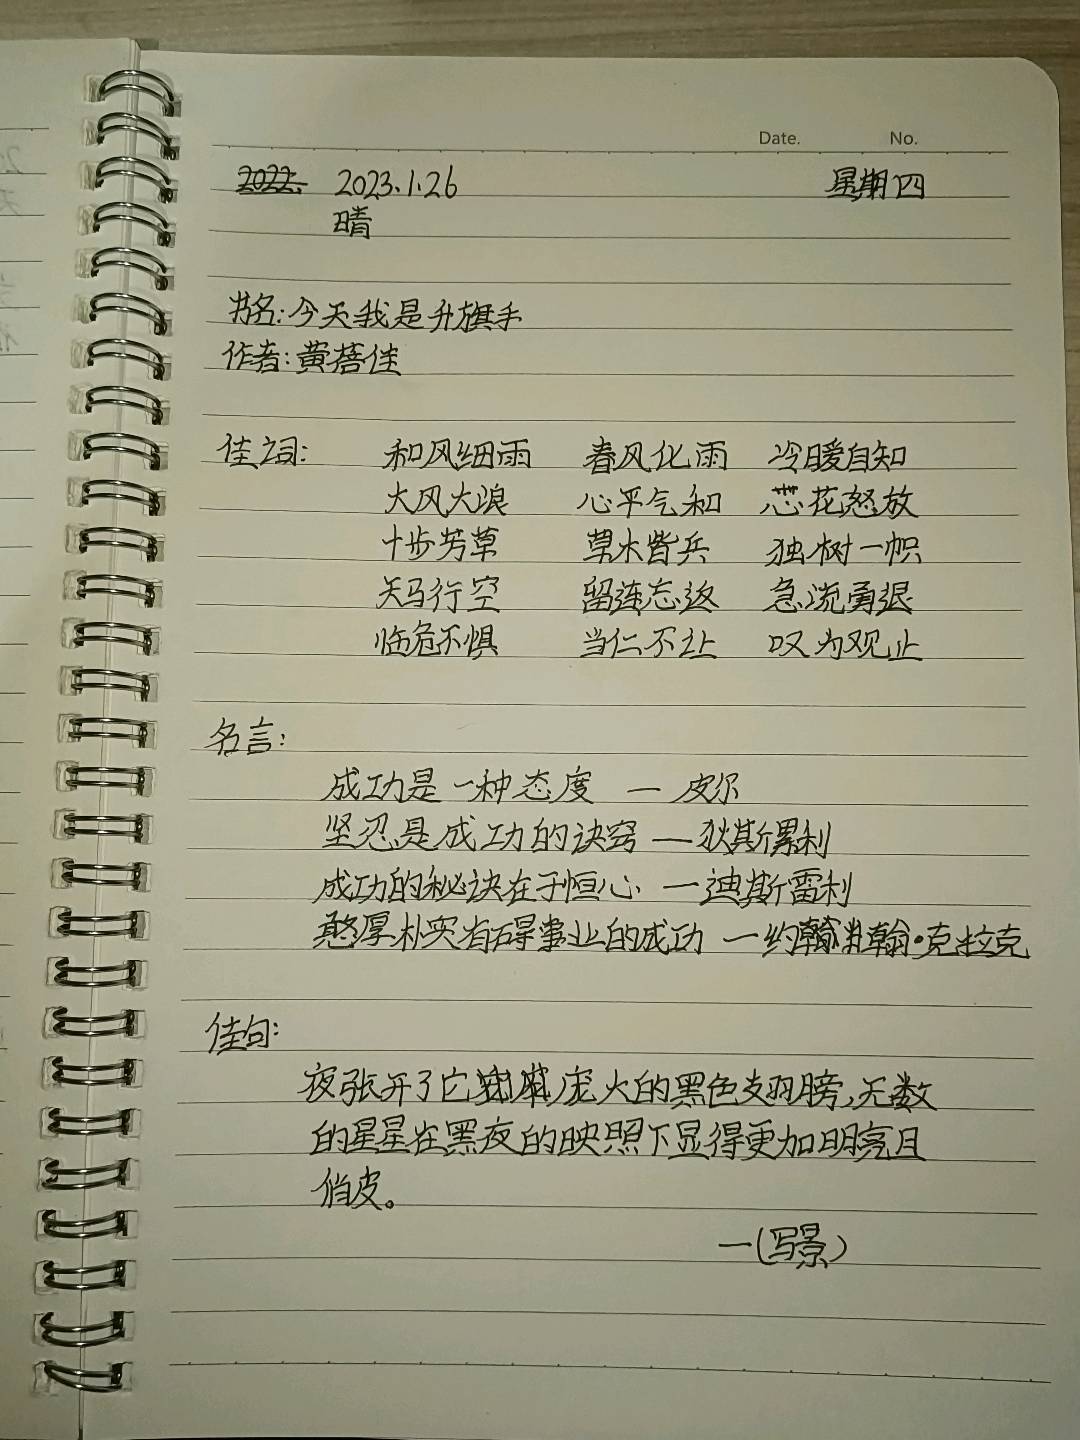 Date. No.
2022. 2023.1.26 星期四
晴
书名:今天我是升旗手
作者:黄蓓佳
佳词: 和风细雨 春风化雨 冷暖自知
大风大浪 心平气和 花怒放
十步芳草 草木皆兵 独树一帜
天马行空 留连忘返 急流勇退
临危不惧 当仁不让 叹为观止
名言:
成功是一种态度 — 皮尔
坚忍是成功的诀窍 — 狄斯累利
成功的秘诀在于恒心 — 迪斯雷利
憨厚朴实有碍事业的成功 — 约翰·克拉克
佳句:
夜张开了它庞大的黑色翅膀,无数
的星星在黑夜的映照下显得更加明亮且
俏皮。
—(写景)